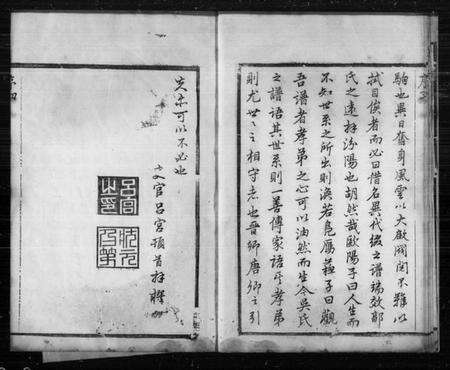 駒也異日奮身風雲以大啟閥閱不難以
拭目俟者而必曰借名異代攀之譜端效郭
氏之遠拜汾陽也胡然哉歐陽子曰人生而
不知世系之所出則渙若鳧雁蘇子曰觀
吾譜者孝弟之心可以油然而生今吳氏
之譜語其世系則一善傳家語乎孝弟
則尤世世相守者也晉卿唐卿之引
先志可以不必也
文官呂宮頓首拜撰
呂宮
之印
狀元
及第